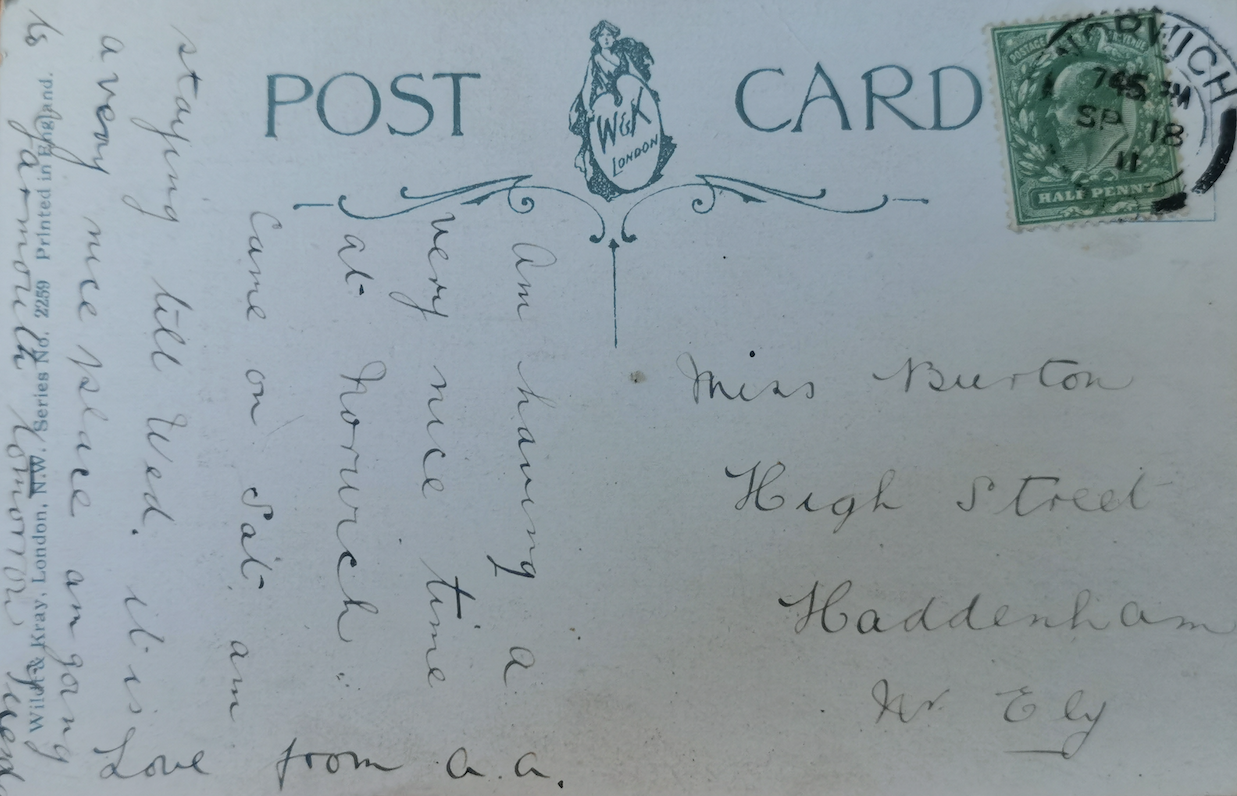 POST CARD
W&K
LONDON
POSTAGE
HALF PENNY
NORWICH
SP 18
11
Am having a
very nice time
at Norwich.
Came on Sat. am
staying till Wed. it is
a very nice place am going
to Yarmouth tomorrow
Love from a.a.
Miss Burton
High Street
Haddenham
Nr Ely
Wildt & Kray, London, N.W. Series No. 2259 Printed in England.